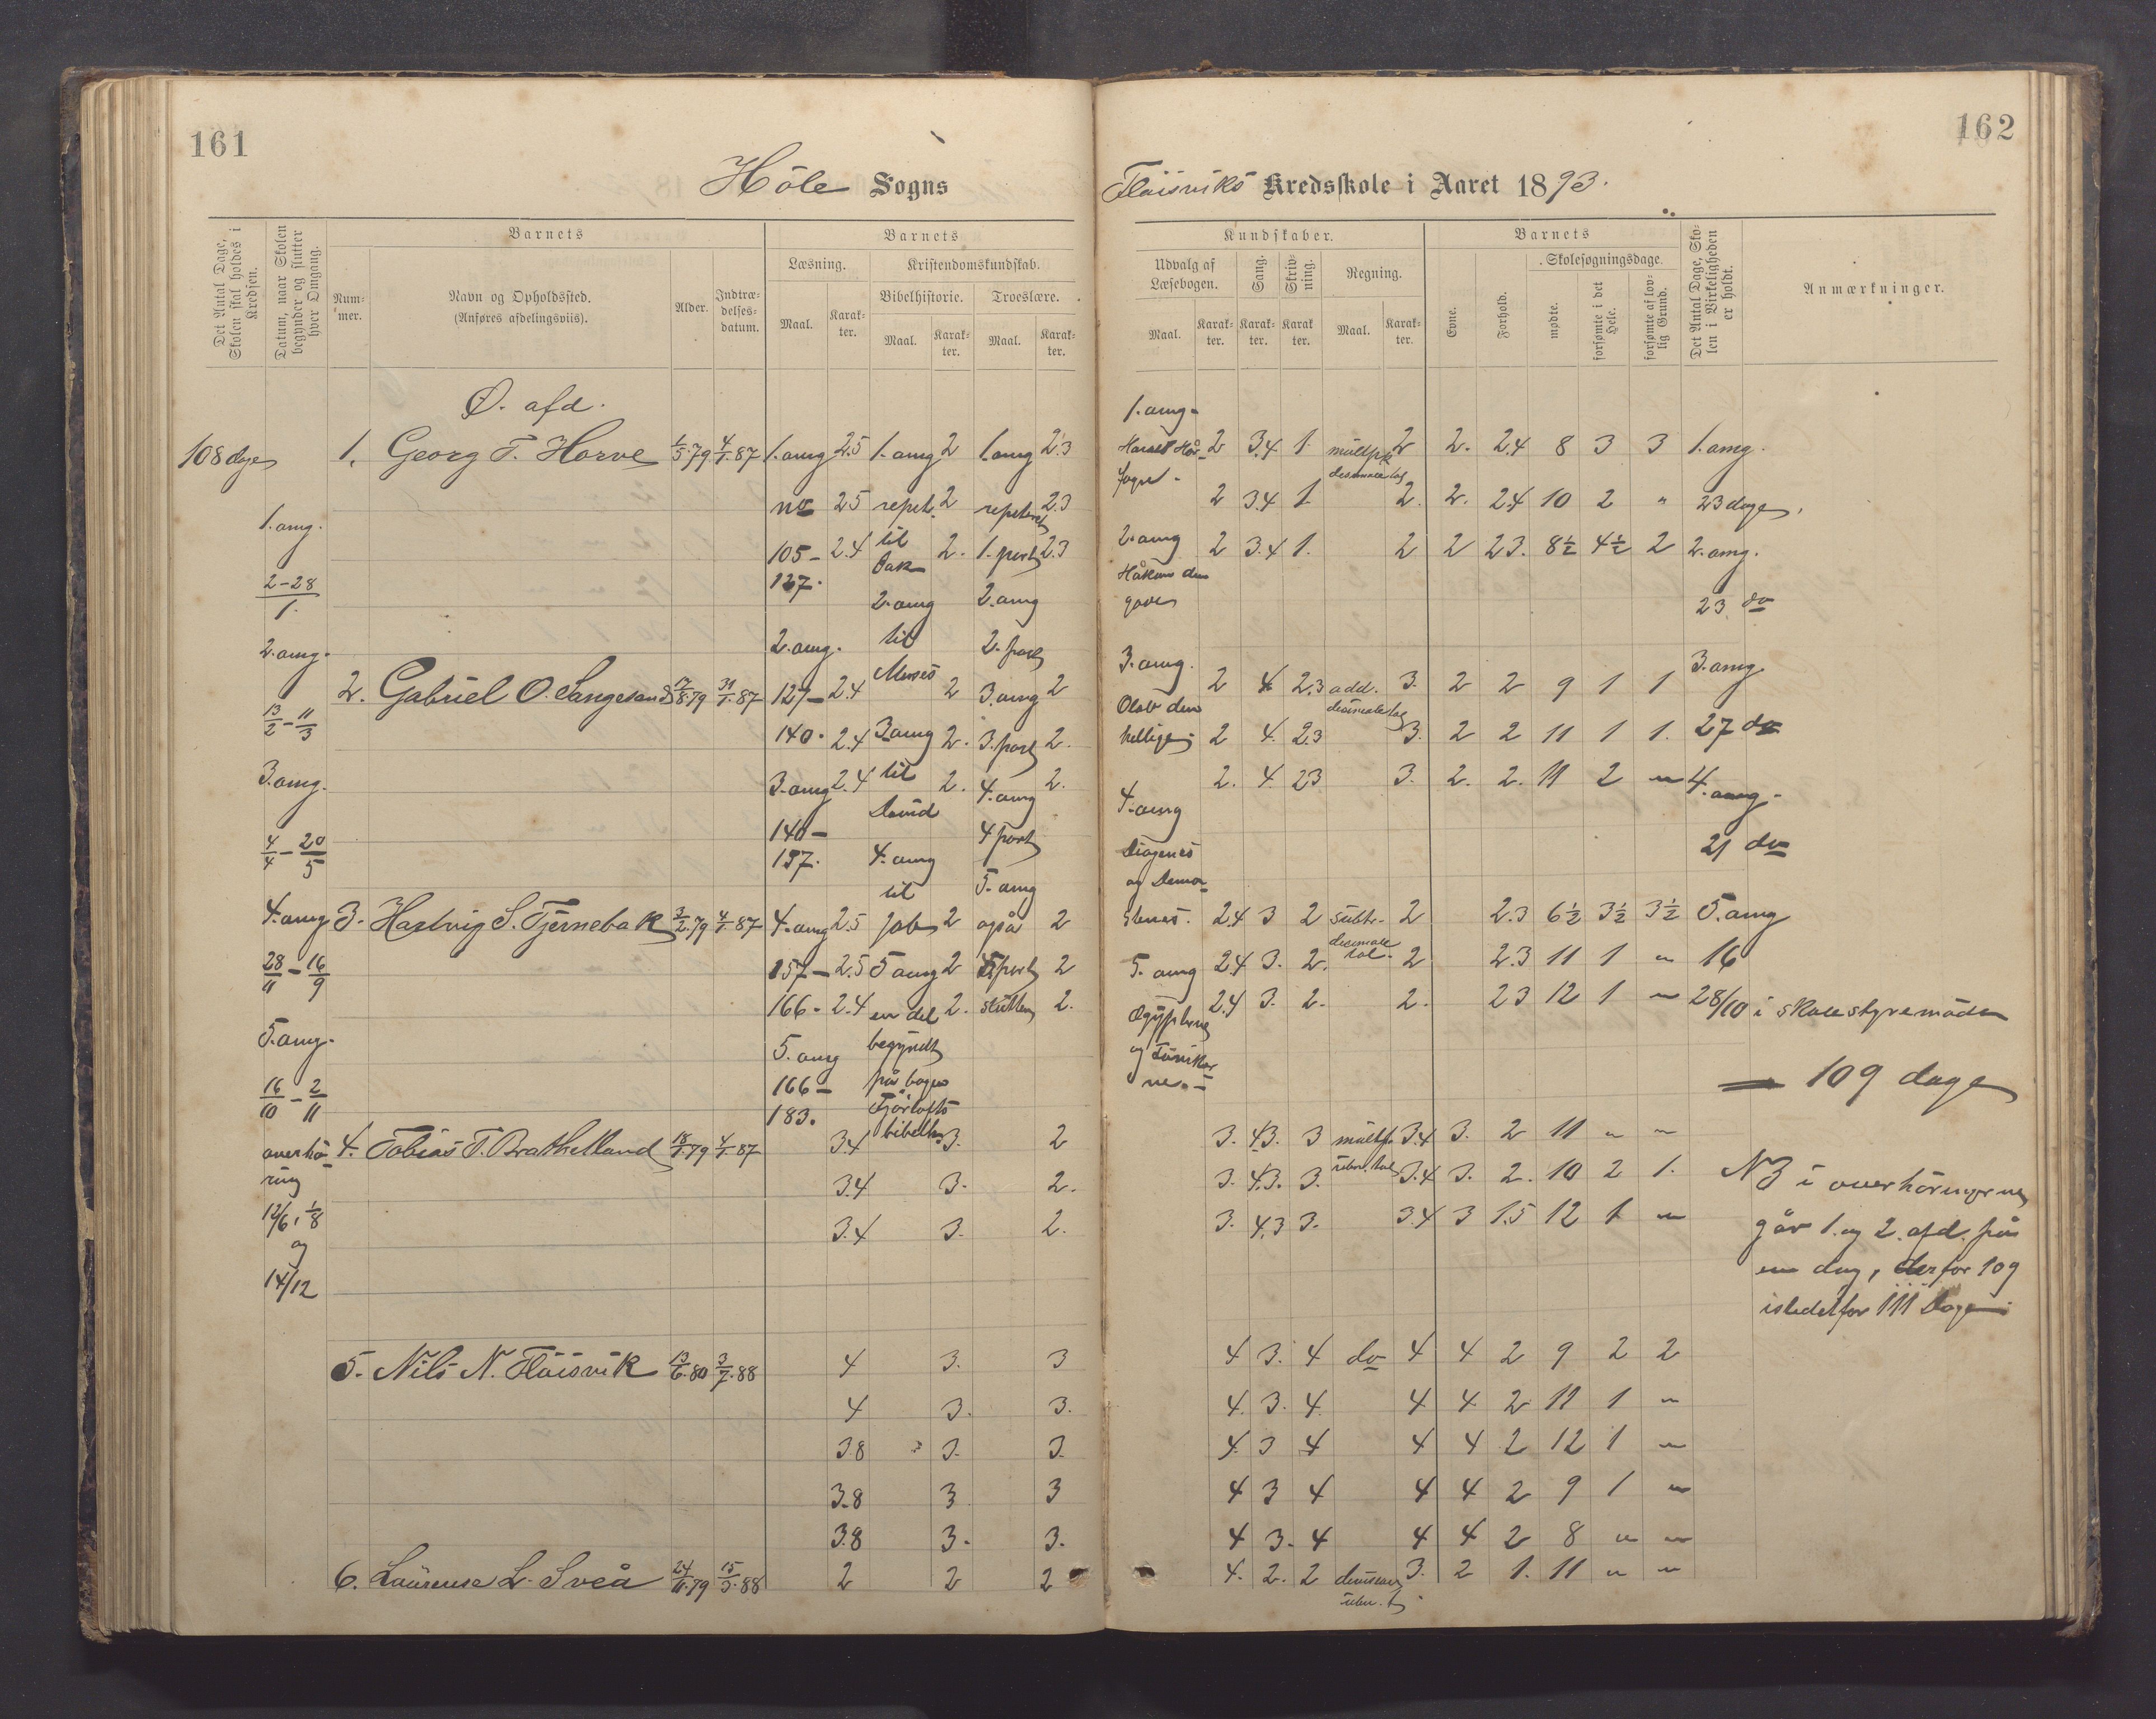 161
162
Höle Sogns
Flöisviks Kredsskole i Aaret 1893.
Det Antal Dage, Skolen skal holdes i Kredsen.
Datum, naar Skolen begynder og slutter hver Omgang.
Barnets
Num-mer.
Navn og Opholdssted.
(Anføres afdelingsviis).
Alder.
Indtræ-delses-datum.
Barnets
Læsning.
Maal.
Karak-ter.
Kristendomskundskab.
Bibelhistorie.
Maal.
Karak-ter.
Troeslære.
Maal.
Karak-ter.
Kundskaber.
Udvalg af Læsebogen.
Maal.
Karak-ter.
Sang.
Karak-ter.
Skriv-ning.
Karak ter.
Regning.
Maal.
Karak-ter.
Barnets
Evne.
Forhold.
Skolesøgningsdage.
mødte.
forsømte i det Hele.
forsømte af lov-lig Grund.
Det Antal Dage, Sko-len i Virkeligheden er holdt.
Anmærkninger.
Ø. afd.
108 dage
1. Georg T. Horve 1/5.79 4/1.87 1. omg 2.5 1. omg 2 1. omg 2.3
2.5 repet. 2 repeteret 2.3
105- 2.4 til 2. 1. part 2.3
127.
2. omg 2. omg
2. omg. til 2. part
Moses
2. Gabriel O. Langesand 17/8.79 31/1.87 127- 2.4 2 3. omg 2
140. 2.4 3. omg 2. 3. part 2.
3. omg 2.4 til 2. 4. omg 2.
David
140- 4 part
157. 4. omg
til 5. omg
3. Hartvig S. Tjernebak 3/2.79 4/1.87 4. omg 2.5 Job 2 også 2
157- 2.5 5 omg 2 part 2
166. 2.4 en del 2. slutten 2.
5. omg begyndt
166- på bogen
183. bibelh.
4. Tobias T. Bratthetland 18/1.79 4/1.87 3.4 3. 2
3.4 3. 2.
3.4 3. 2.
5. Nils N. Flöisvik 13/6.80 3/7.88 4 3. 3
4 3. 3.
3.8 3. 3.
3.8 3 3
3.8 3. 3.
6. Laurense L. Sveå 24/11.79 15/3.88 2 2 2
1. omg.
2-28
1.
2. omg.
13/2 - 11/3
3. omg.
4/4 - 20/5
4. omg
28/11 - 16/9
5. omg.
16/10 - 2/11
overhö-
ring
12/6, 1/8
og
14/12
1. omg.
Harald Hår-
fagre.
2. omg
Håkon den
gode
3. omg.
Olav den
hellige
4. omg
Diogenes
og Demo-
stenes.
5. omg
Ægypterne
og Fönikier-
ne.
2 3.4 1. 2 2. 2.4 8 3 3 1. omg.
2 3.4 1. 2. 2. 2.4 10 2 " 23 dage
2 3.4 1. 2 2 2.3. 8½ 4½ 2 2. omg.
23 do
3. omg
2 4 2.3 add. 3. 2 2 9 1 1
decimaltal
2 4. 2.3 3. 2 2 11 1 1. 27 do
2. 4. 2.3 3. 2. 2. 11 2 " 4. omg.
21 do
2.4 3 2 subtr. 2 2.3 6½ 3½ 3½ 5. omg
decimale
tal.
2.4 3. 2. 2 2.3 11 1 " 16
2.4 3. 2. 2. 2.3 12 1 " 28/10 i skolestyremöde
109 dage
3. 4.3. 3 multp. 3.4 3. 2 11 " "
3. 4.3. 3. 3.4 3. 2. 10 2 1.
3. 4.3 3. 3.4 3 1.5 12 1 "
NB i overhöringerne
går 1. og 2. afd. på
en dag, derfor 109
istedetfor 111 Dage
4 3. 4 do 4 4 2 9 2 2
4. 3. 4. 4 4 2 11 1 "
4. 3 4 4 4 2 12 1 "
4 3 4 4 4 2 9 1 "
4 3. 4 4 4 2 8 " "
4. 2. 2 3. 2 1. 11 " "